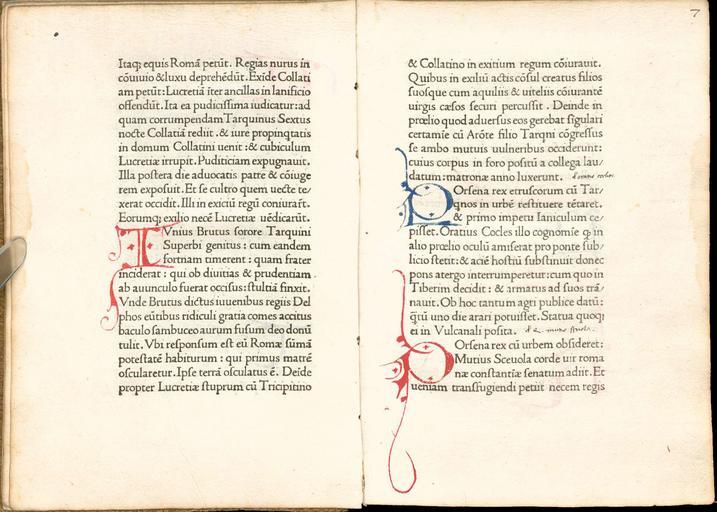 Itaq; equis Romã petũt. Regias nurus in
cõuiuio &luxu deprehẽdũt. Exide Collati
am petũt: Lucretiã iter ancillas in lanificio
offendũt. Ita ea pudicissima iudicatur: ad
quam corrumpendam Tarquinus Sextus
nocte Collatiã rediit. & iure propinq̃tatis
in domum Collatini uenit: & cubiculum
Lucretiæ irrupit. Pudiciciam expugnauit.
Illa postera die aduocatis patre & cõiuge
rem exposuit. Et se cultro quem ueste te/
xerat occidit. Illi in exiciũ regũ coniurart̃.
Eorumq; exilio necẽ Lucretiæ uẽdicarũt.
IVnius Brutus sorore Tarquini
Superbi genitus: cum eandem
fortnam timerent: quam frater
inciderat: qui ob diuitias & prudentiam
ab auunculo fuerat occisus: stultiã finxit.
Vnde Brutus dictus iuuenibus regiis Del
phos eũtibus ridiculi gratia comes accitus
baculo sambuceo aurum fusum deo donũ
tulit. Vbi responsum est eũ Romæ sũmã
potestatẽ habiturum: qui primus matrẽ
oscularetur. Ipse terrã osculatus ẽ. Deĩde
propter Lucretiæ stuprum cũ Tricipitino
7
& Collatino in exitium regum cõiurauit.
Quibus in exiliũ actis cõsul creatus filios
suosque cum aquiliis & uiteliis cõiurantẽ
uirgis cæsos securi percussit. Deinde in
prœlio quod aduersus eos gerebat sĩgulari
certamĩe cũ Arõte filio Tarqni cõgressus
se ambo mutuis uulneribus occiderunt:
cuius corpus in foro positũ a collega lau/
datum: matronæ anno luxerunt.
POrsena rex etruscorum cũ Tar/
qnos in urbẽ restituere tẽtaret.
& primo impetu Ianiculum ce/
pisset. Oratius Cocles illo cognomĩe q̃ in
alio prœlio oculũ amiserat pro ponte sub/
licio stetit: & aciẽ hostiũ substinuit donec
pons atergo interrumperetur: cum quo in
Tiberim decidit: & armatus ad suos trã/
nauit. Ob hoc tantum agri publice datũ:
q̃tũ uno die arari potuisset. Statua quoq;
ei in Vulcanali posita.
POrsena rex cũ urbem obsideret:
Mutius Sceuola corde uir roma
næ constantiæ senatum adiit. Et
ueniam transfugiendi petiit necem regis